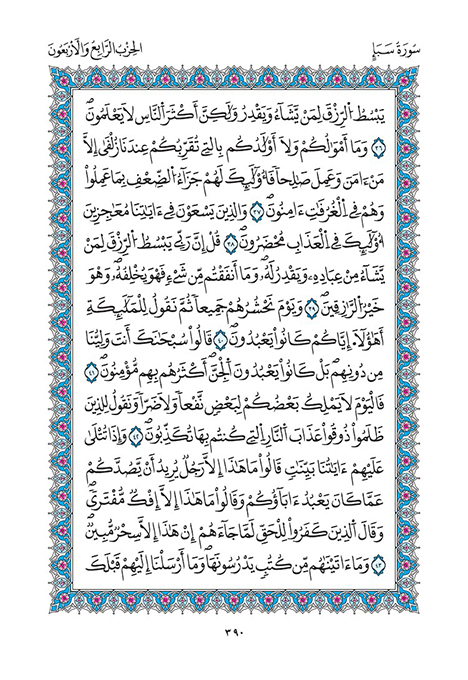 سُورَةُ سَبَإٍ
الحِزْبُ الرَّابِعُ وَالْأَرْبَعُونَ
يَبْسُطُ اُ۬لرِّزْقَ لِمَنْ يَّشَآءُ وَيَقْدِرُ وَلَٰكِنَّ أَكْثَرَ اَ۬لنَّاسِ لَا يَعْلَمُونَۖ
٣٦ وَمَآ أَمْوَٰلُكُمْ وَلَآ أَوْلَٰدُكُم بِالتِے تُقَرِّبُكُمْ عِندَنَا زُلْف۪ىٰٓ إِلَّا
مَنَ اٰمَنَ وَعَمِلَ صَٰلِحاٗ فَأُوْلَٰٓئِكَ لَهُمْ جَزَآءُ اُ۬لضِّعْفِ بِمَا عَمِلُواْ
وَهُمْ فِے اِ۬لْغُرُفَٰتِ ءَامِنُونَۖ ٣٧ وَالذِينَ يَسْعَوْنَ فِےٓ ءَايَٰتِنَا مُعَٰجِزِينَ
أُوْلَٰٓئِكَ فِے اِ۬لْعَذَابِ مُحْضَرُونَۖ ٣٨ قُلْ إِنَّ رَبِّے يَبْسُطُ اُ۬لرِّزْقَ لِمَنْ
يَّشَآءُ مِنْ عِبَادِهِۦ وَيَقْدِرُ لَهُۥۖ وَمَآ أَنفَقْتُم مِّن شَےْءٖ فَهُوَ يُخْلِفُهُۥۖ وَهُوَ
خَيْرُ اُ۬لرَّٰزِقِينَۖ ٣٩ وَيَوْمَ نَحْشُرُهُمْ جَمِيعاٗ ثُمَّ نَقُولُ لِلْمَلَٰٓئِكَةِ
أَهَٰٓؤُلَآءِ اِيَّاكُمْ كَانُواْ يَعْبُدُونَۖ ٤٠ قَالُواْ سُبْحَٰنَكَ أَنتَ وَلِيُّنَا
مِن دُونِهِمۖ بَلْ كَانُواْ يَعْبُدُونَ اَ۬لْجِنَّۖ أَكْثَرُهُم بِهِم مُّؤْمِنُونَۖ ٤١
فَالْيَوْمَ لَا يَمْلِكُ بَعْضُكُمْ لِبَعْضٖ نَّفْعاٗ وَلَا ضَرّاٗ وَنَقُولُ لِلذِينَ
ظَلَمُواْ ذُوقُواْ عَذَابَ اَ۬لنَّارِ اِ۬لتِے كُنتُم بِهَا تُكَذِّبُونَۖ ٤٢ وَإِذَا تُتْلَىٰ
عَلَيْهِمْ ءَايَٰتُنَا بَيِّنَٰتٖ قَالُواْ مَا هَٰذَآ إِلَّا رَجُلٞ يُرِيدُ أَنْ يَّصُدَّكُمْ
عَمَّا كَانَ يَعْبُدُ ءَابَآؤُكُمْ وَقَالُواْ مَا هَٰذَآ إِلَّآ إِفْكٞ مُّفْتَرىٗۖ
وَقَالَ اَ۬لذِينَ كَفَرُواْ لِلْحَقِّ لَمَّا جَآءَهُمْ إِنْ هَٰذَآ إِلَّا سِحْرٞ مُّبِينٞۖ
٤٣ وَمَآ ءَاتَيْنَٰهُم مِّن كُتُبٖ يَدْرُسُونَهَاۖ وَمَآ أَرْسَلْنَآ إِلَيْهِمْ قَبْلَكَ
٣٩٠